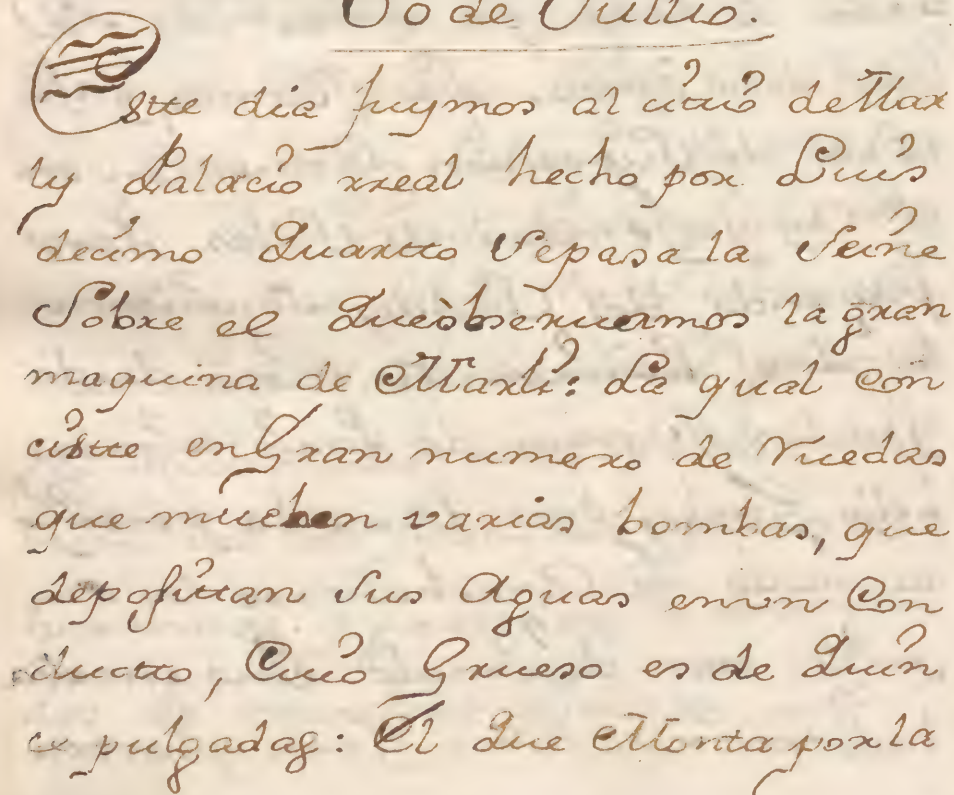 de Jullio.
Estte dia fuymos al cittio de Mar
ly Palacio rreal hecho por Luis
decimo Quartto Sepasa la Seine
Sobre el Queobseruamos la gran
maquina de Marli: La qual Con
cistte en Gran numero de Ruedas
que mueben varias bombas, que
deposittan Sus Aguas enun Con
ductto, Cuio Grueso es de Quin
ce pulgadas: El Que Monta por la